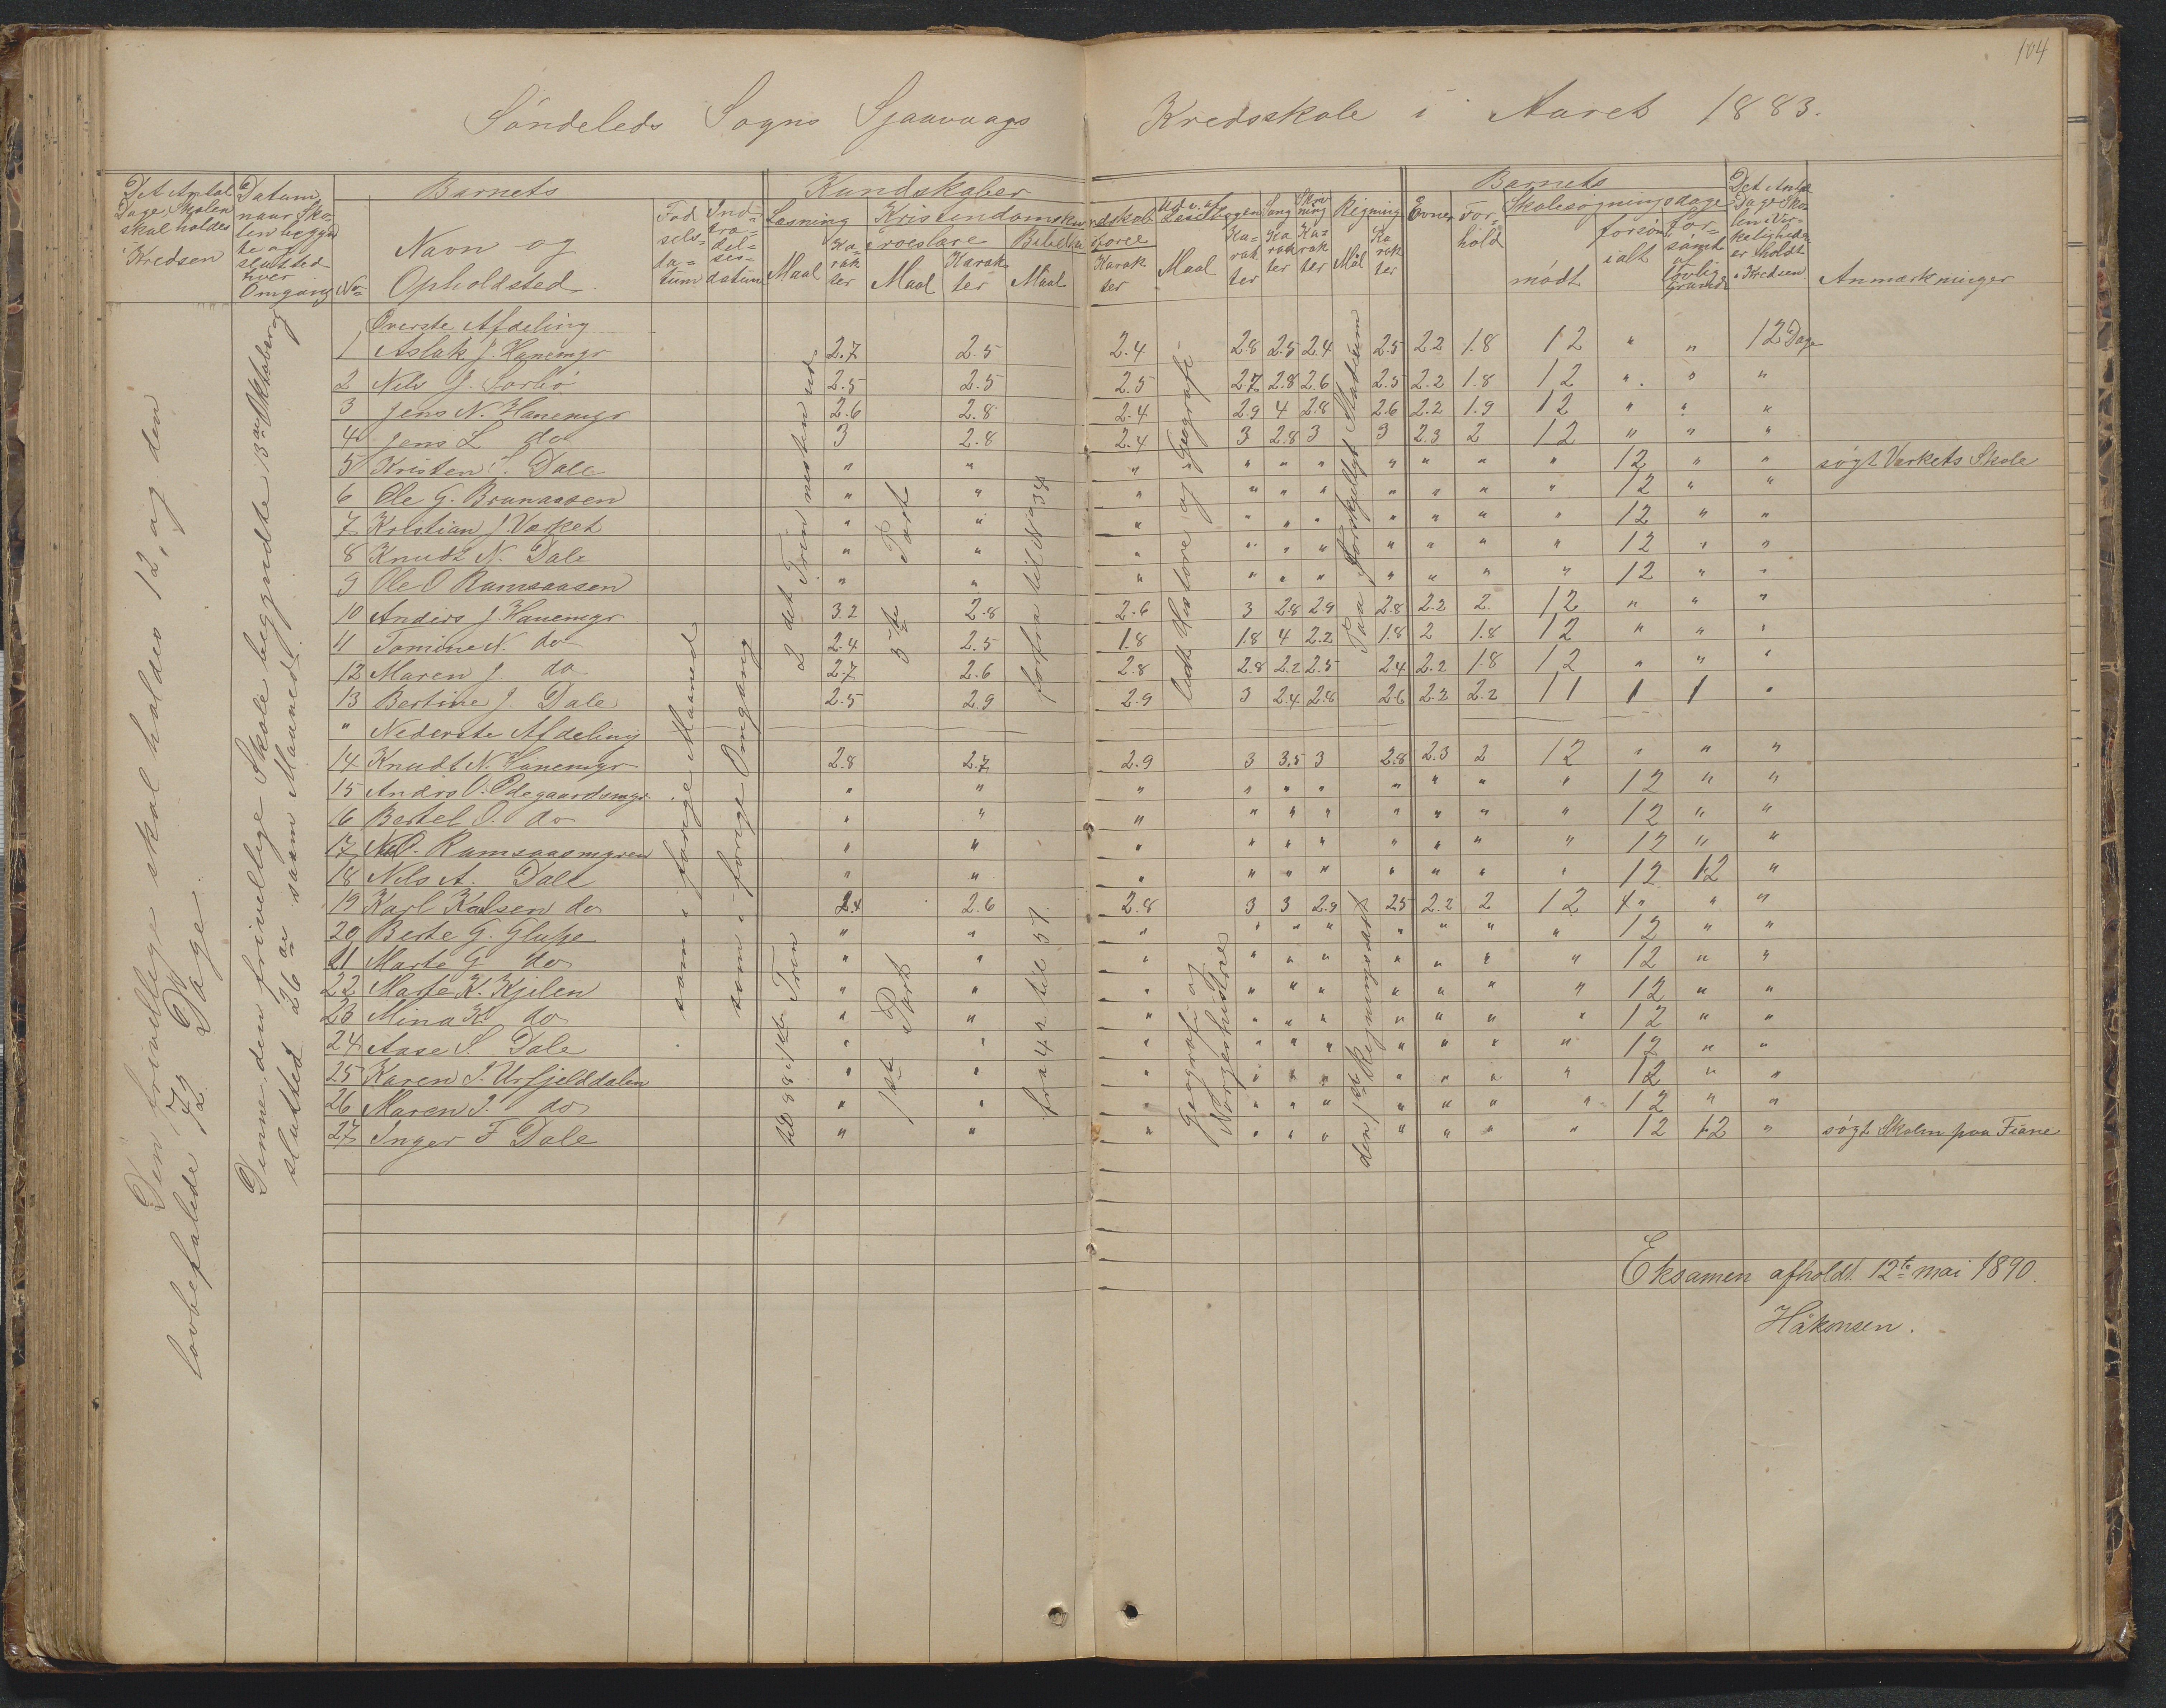 104
Söndeleds Sogns Sjaavaags Kredsskole i Aaret 1883.
Det Antal Dage, Skolen skal holdes i Kredsen
Datum, naar Skolen begyndte og slutted hver Omgang
No
Barnets
Navn og Opholdsted
Födselsdatum
Indtrædelsesdatum
Kundskaber
Læsning
Maal
Karakter
Kristendomskundskab
Troeslære
Maal
Karakter
Maal
Karakter
Udv. af Læsebogen
Maal
Karakter
Sang
Karakter
Skrivning
Karakter
Regning
Mål
Karakter
Barnets
Evner
Forhold
Skolesøgningsdage
mödt
forsömt ialt
forsömt af lovlig Grund
Det Antal Dage Skolen i Virkeligheden er holdt i Kredsen
Anmærkninger
Den frivillige skal holdes 12, og den
lovbefalede 72 Dage.
Denne den frivillige Skole begyndte 13de Oktoberog
slutted 26de samme Maaned.
som i forige Maaned
som i forige Omgang
2 det Trin næsten ud
3die Part
forfra til No 34
Udt Historie og Geografi
Paa forskjelligt Stadium
til 88 1ste Trin
1ste Part
fra 42 til 57.
Geografi og Norgeshistrie
den 1ste Regningsart
Överste Afdeling
1 Aslak J. Hanemyr 2.7 2.5 2.4 2.8 2.5 2.4 2.5 2.2 1.8 12 " " 12 Dage
2 Nils J. Sorbö 2.5 2.5 2.5 2.7 2.8 2.6 2.5 2.2 1.8 12 " " "
3 Jens N. Hanemyr 2.6 2.8 2.4 2.9 4 2.8 2.6 2.2 1.9 12 " " "
4 Jens L do 3 2.8 2.4 3 2.8 3 3 2.3 2 12 " " "
5 Kristen S. Dale " " " " " " " " " " 12 " " søgt Værkets Skole
6 Ole G. Brunaasen " " " " " " " " " " 12 " "
7 Kristian J. Værket " " " " " " " " " " 12 " "
8 Knudt N. Dale " " " " " " " " " " 12 " "
9 Ole O Ramsaasen " " " " " " " " " " 12 " "
10 Anders J. Hanemyr 3.2 2.8 2.6 3 2.8 2.9 2.8 2.2 2. 12 " " "
11 Tomine N. do 2.4 2.5 1.8 1.8 4 2.2 1.8 2 1.8 12 " " "
12 Maren J. do 2.7 2.6 2.8 2.8 2.2 2.5 2.4 2.2 1.8 12 " " "
13 Bertine J. Dale 2.5 2.9 2.9 3 2.4 2.8 2.6 2.2 2.2 11 1 1 "
" Nederste Afdeling
14 Knudt N. Hanemyr 2.8 2.7 2.9 3 3.5 3 2.8 2.3 2 12 " " "
15 Andrs O. Ödegaardsmyr " " " " " " " " " " 12 " "
16 Bertel O. do " " " " " " " " " " 12 " "
17 O. Ramsaasmyren " " " " " " " " " " 12 " "
18 Nils A. Dale " " " " " " " " " " 12 12 "
19 Karl Kalsen do 2.4 2.6 2.8 3 3 2.9 2.5 2.2 2 12 " " "
20 Berte G. Glupe " " " " " " " " " " 12 " "
21 Marte G do " " " " " " " " " " 12 " "
22 Marte K. Kjilen " " " " " " " " " " 12 " "
23 Mina K. do " " " " " " " " " " 12 " "
24 Aase S. Dale " " " " " " " " " " 12 " "
25 Karen T. Urfjelddalen " " " " " " " " " " 12 " "
26 Maren T. do " " " " " " " " " " 12 " "
27 Inger F Dale " " " " " " " " " " 12 12 " søgt Skolen paa Fiane
Eksamen afholdt 12te mai 1890.
Håkonsen.